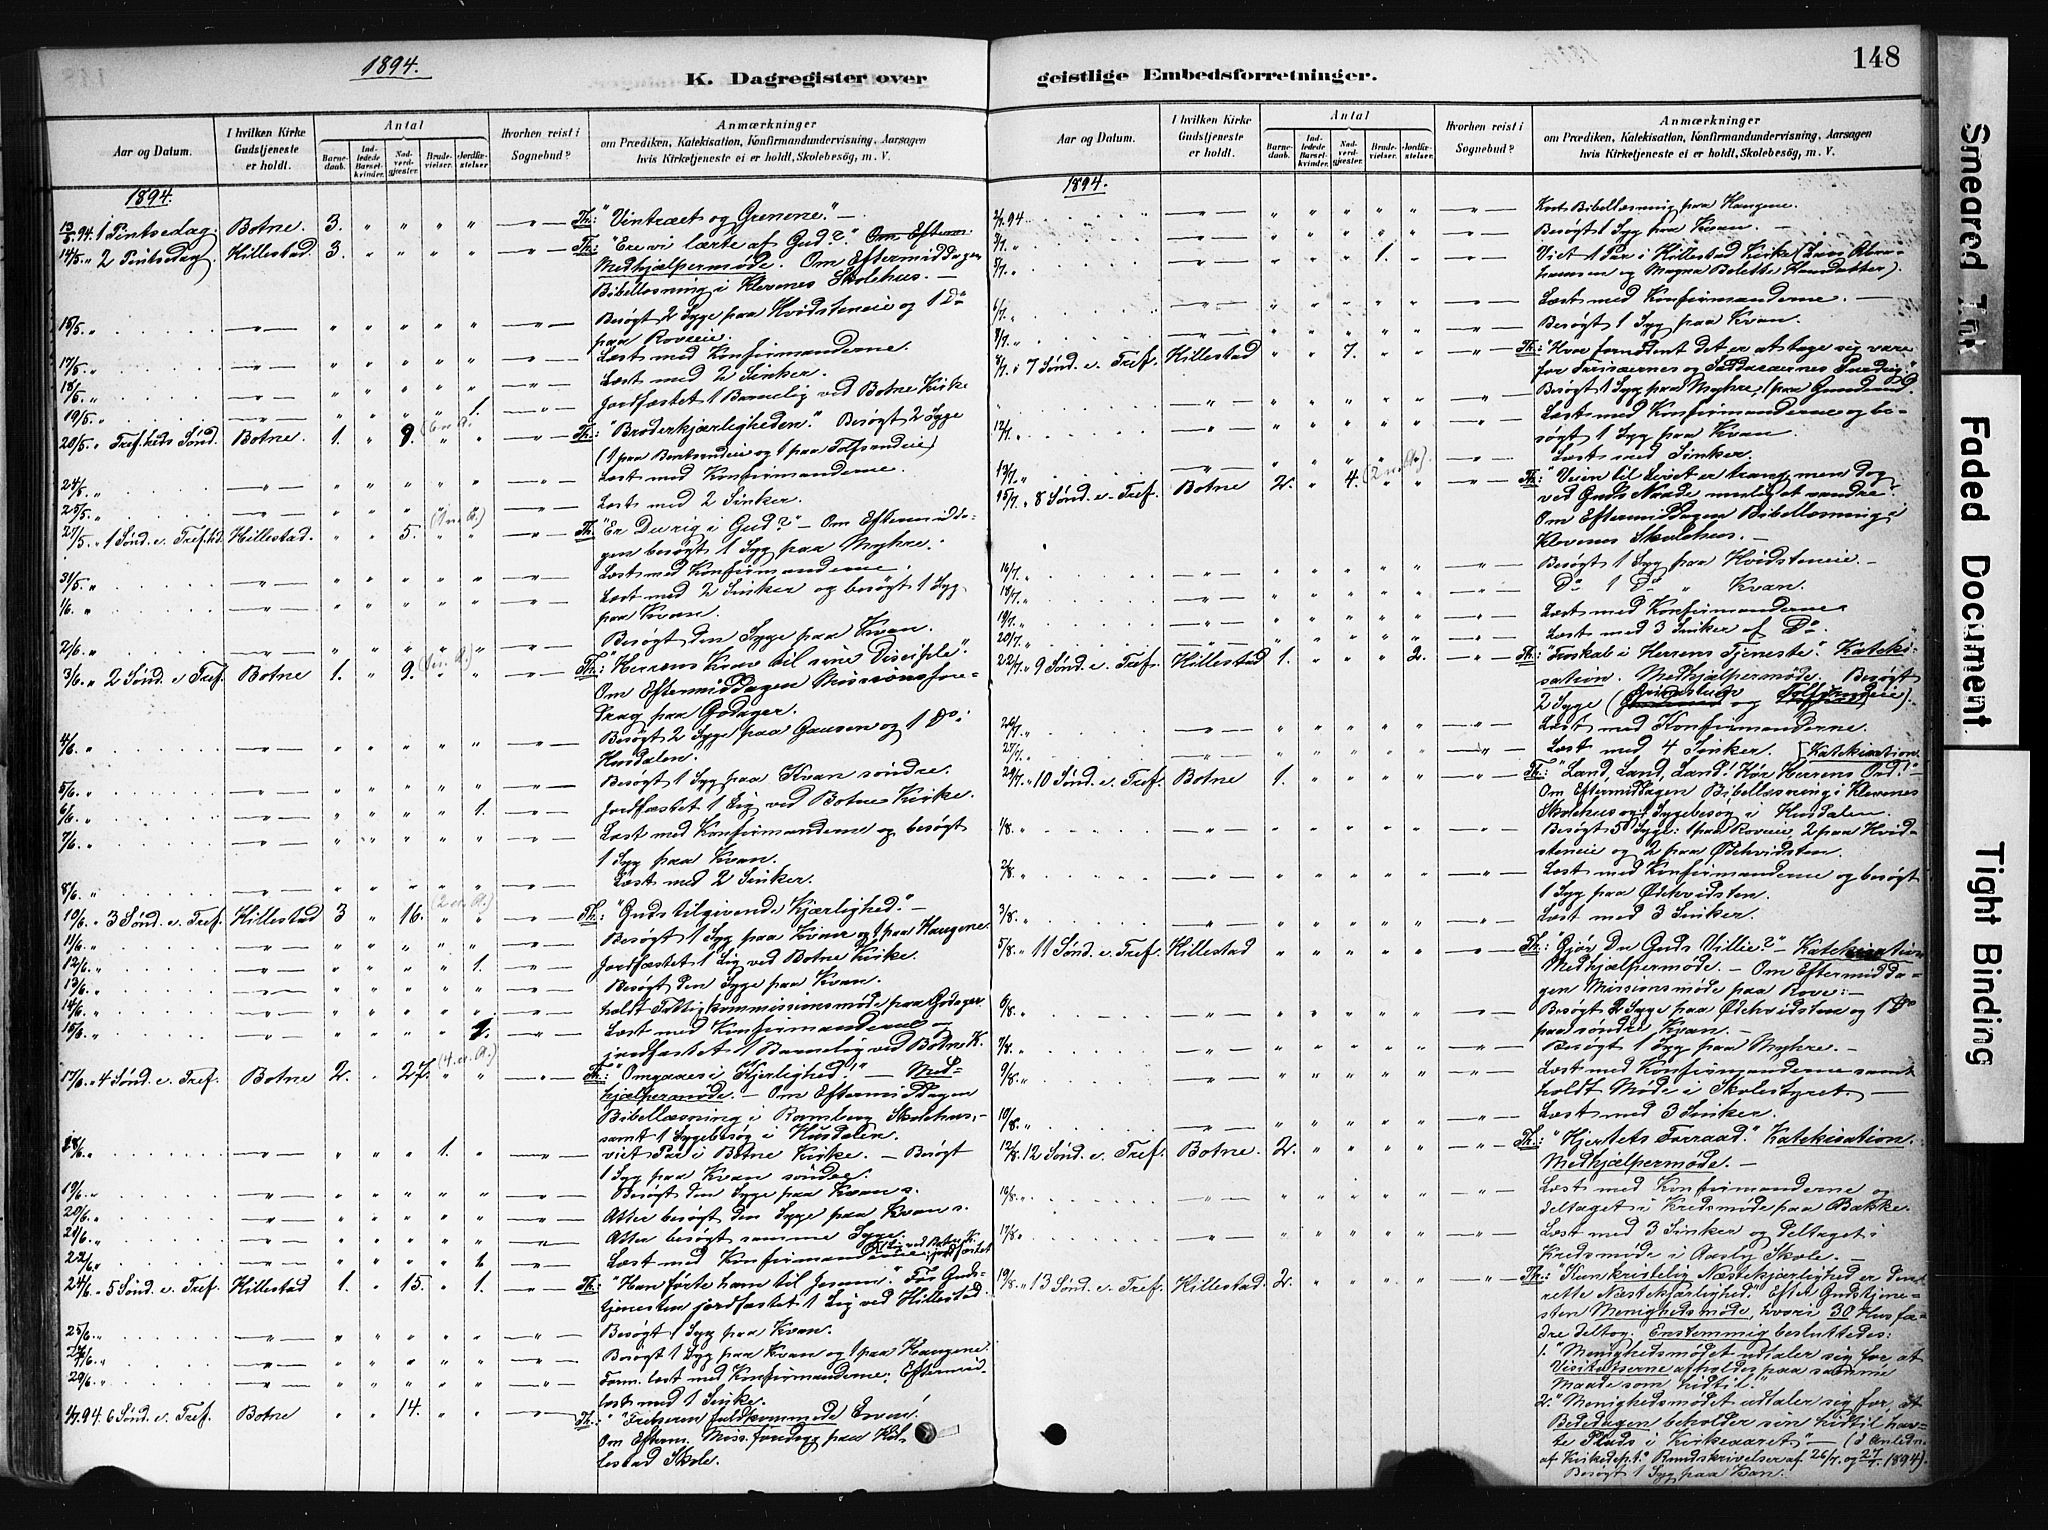 148
1894.
K. Dagregister over
geistlige Embedsforretninger.
Aar og Datum.
I hvilken Kirke Gudstjeneste er holdt.
Antal
Barnedaab.
Indledede Barselkvinder.
Nadverdgjæster.
Brudevielser.
Jordfæstelser.
Hvorhen reist i Sognebud?
Anmærkninger
om Prædiken, Katekisation, Konfirmandundervisning, Aarsagen
hvis Kirketjeneste ei er holdt, Skolebesøg, m. V.
1894.
13/5 94. 1 Pintsedag. Botne. 3. " " " " — " — Th: "Vintræet og Grenene." —
14/5 " 2 Pintsdag. Hillestad. 3. " " " " — " — Th: "Ere vi lærte af Gud?" Om Efterm.
Medhjælpermøde. Om Eftermiddagen
Bibellæsning i Klevenes Skolehus. —
15/5 " — " — Besøgt 2 Syge paa Hvidsteneie og 1 Do
paa Roveeie.
17/5 " — " — Læst med Konfirmanderne.
18/5 " — " — Læst med 2 Sinker.
19/5 " — " — 1. Jordfæstet 1 Barnelig ved Botne Kirke
20/5 " Tref.heds Sønd. Botne. 1. " 9. " " — " — Th: "Broderkjærligheden." Besøgt 2 Syge
(1 paa Bentsrudeie og 1 paa Tolfsrudeie)
24/5 " — " — Læst med Konfirmanderne.
25/5 " — " — Læst med 2 Sinker.
27/5 " 1 Sønd. e. Tref.hd. Hillestad. " " 5. " " — " — Th: "Er Du rig i Gud?" — Om Eftermidda-
gen besøgt 1 Syg paa Myhre.
31/5 " — " — Læst med Konfirmanderne.
1/6 " — " — Læst med 2 Sinker og besøgt 1 Syg
paa Kvan.
2/6 " — " — Besøgt den Syge paa Kvan.
3/6 " 2 Sønd. e. Tref. Botne. 1. " 9. " " — " — Th: "Herrens Krav til sine Disciple".
Om Eftermiddagen Missionsfore-
drag paa Godager.
4/6 " — " — Besøgt 2 Syge paa Gausen og 1 Do i
Husdalen.
5/6 " — " — Besøgt 1 Syg paa Kvan søndre.
6/6 " — " — 1. Jordfæstet 1 Lig ved Botne Kirke.
7/6 " — " — Læst med Konfirmanderne og besøgt
1 Syg paa Kvan.
8/6 " — " — Læst med 2 Sinker.
10/6 " 3 Sønd. e. Tref. Hillestad 3 " 16. " " — " — Th: "Guds tilgivende Kjærlighed." —
11/6 " — " — Besøgt 1 Syg paa Kvan og 1 paa Haugene.
12/6 " — " — 1. Jordfæstet 1 Lig ved Botne Kirke.
13/6 " — " — Besøgt den Syge paa Kvan.
14/6 " — " — holdt Fattigkommissionsmøde paa Godager
15/6 " — " — 1. Læst med Konfirmanderne —
jordfæstet 1 Barnelig ved Botne K.
17/6 " 4 Sønd. e. Tref. Botne 2. " 27. " " — " — Th: "Omgaaes i Kjerlighed!" — Med-
hjælpermøde. — Om Eftermiddagen
Bibellæsning i Ramberg Skolehus, —
samt 1 Sygebesøg i Husdalen.
18/6 " — " — 1. viet Par i Botne Kirke. — Besøgt
1 Syg paa Kvan søndre.
19/6 " — " — Besøgt den Syge paa Kvan s.
20/6 " — " — Atter besøgt den Syge paa Kvan s.
21/6 " — " — Atter besøgt samme Syge.
22/6 " — " — Læst med Konfirmanderne
24/6 " 5 Sønd. e. Tref. Hillestad 1. " 15. " 1. — " — Th: "Han førte ham til Jesum". Før Guds-
tjenesten jordfæstet 1 Lig ved Hillestad.
25/6 " — " — Besøgt 1 Syg paa Kvan.
27/6 " — " — Besøgt 1 Syg paa Kvan og 1 paa Haugene.
29/6 " — " — Form. læst med Konfirmanderne; Eftermid.
læst med 1 Sinke.
1/7 94. 6 Sønd. e. Tref. Botne " " 14. " " — " — Th: "Frelseren fuldkommede Loven!
Om Efterm. Miss.foredrag paa Hil-
lestad Skole.
Aar og Datum.
I hvilken Kirke Gudstjeneste er holdt.
Antal
Barnedaab.
Indledede Barselkvinder.
Nadverdgjæster.
Brudevielser.
Jordfæstelser.
Hvorhen reist i Sognebud?
Anmærkninger
om Prædiken, Katekisation, Konfirmandundervisning, Aarsagen
hvis Kirketjeneste ei er holdt, Skolebesøg, m. V.
1894.
2/7 94 — " — Bibellæsning paa Haugene.
3/7 " — " — Besøgt 1 Syg paa Kvan.
5/7 " — " — 1. Viet 1 Par i Hillestad Kirke (Lars Abra-
hamsen og Magna Bolette Hansdatter).
6/7 " — " — Læst med Konfirmanderne. —
7/7 " — " — Besøgt 1 Syg paa Kvan.
8/7 " 7 Sønd. e. Tref. Hillestad " " 7. " " — " — Th: "Hvor fornødent det er at tage sig vare
for Farisæernes og Saddukæernes Surdeig."
Besøgt 1 Syg paa Myhre,
12/7 " — " — Læst med Konfirmanderne og be-
søgt 1 Syg paa Kvan.
13/7 " — " — Læst med Sinker.
15/7 " 8 Sønd. e. Tref. Botne 2. " 4. " " — " — Th: "Veien til Livet er trang, men dog
ved Guds Naade mulig at vandre".
Om Eftermiddagen Bibellæsning i
Klevenes Skolehus. —
16/7 " — " — Besøgt 1 Syg paa Hvidsteneie. —
18/7 " — " — Do 1 Do " Kvan.
19/7 " — " — Læst med Konfirmanderne
20/7 " — " — Læst med 3 Sinker af Do.
22/7 " 9 Sønd. e. Tref. Hillestad 1. " " " 2. — " — Th: "Troskab i Herrens Tjeneste". Kateki-
sation. Medhjælpermøde. Besøgt
2 Syge
26/7 " — " — Læst med Konfirmanderne.
27/7 " — " — Læst med 4 Sinker. Katekisation
29/7 " 10 Sønd. e. Tref. Botne 1. " " " " — " — Th: "Land, Land, Land! Hør Herrens Ord!" —
Om Eftermiddagen Bibellæsning i Klevenes
Skolehus og 1 Sygebesøg i Husdalen.
1/8 " — " — Besøgt 5 Syge: 1 paa Roveeie, 2 paa Hvid-
steneie og 2 paa Ødehvidsten.
2/8 " — " — Læst med Konfirmanderne og besøgt
1 Syg paa Ødehvidsten.
3/8 " — " — Læst med 3 Sinker.
5/8 " 11 Sønd. e. Tref. Hillestad " " " " " — " — Th: "Gjør Du Guds Villie?" — Katekisation
Medhjælpermøde. — Om Eftermidda-
gen Missionsmøde paa Rove: —
6/8 " — " — Besøgt 2 Syge paa Ødehvidsten og 1 Do
paa søndre Kvan. —
7/8 " — " — Besøgt 1 Syg paa Myhre. —
9/8 " — " — Læst med Konfirmanderne samt
holdt Møde i Skolestyret. —
10/8 " — " — Læst med 3 Sinker.
12/8 " 12 Sønd. e. Tref. Botne. 2. " " " " — " — Th: "Hjertets Forraad." Katekisation.
Medhjælpermøde. —
16/8 " — " — Læst med Konfirmanderne og
deltaget i Kredsmøde paa Bakske.
17/8 " — " — Læst med 3 Sinker og deltaget i
Kredsmøde i Aasly Skole. —
19/8 " 13 Sønd. e. Tref. Hillestad 2. " " " " — " — Th: "Kun kristelig Næstekjærlighed er den
rette Næstekjærlighed." Efter Gudstjene-
sten Menighedsmøde, hvori 30 Husfæ-
dre deltog. Enstemmig besluttedes:
1. "Menighedsmødet udtaler sig for, at
Visitatserne afholdes paa samme
Maade som hidtil."
2. "Menighedsmødet udtaler sig for, at
Bededagen beholder sin hidtil hav-
te Plads i Kirkeaaret" — (i Anledn.
af Kirkedept.'s Rundskrivelser af 26/7 og 27/7 1894).
Besøgt 1 Syg paa Kvan.
Smeared Ink
Faded Document
Tight Binding